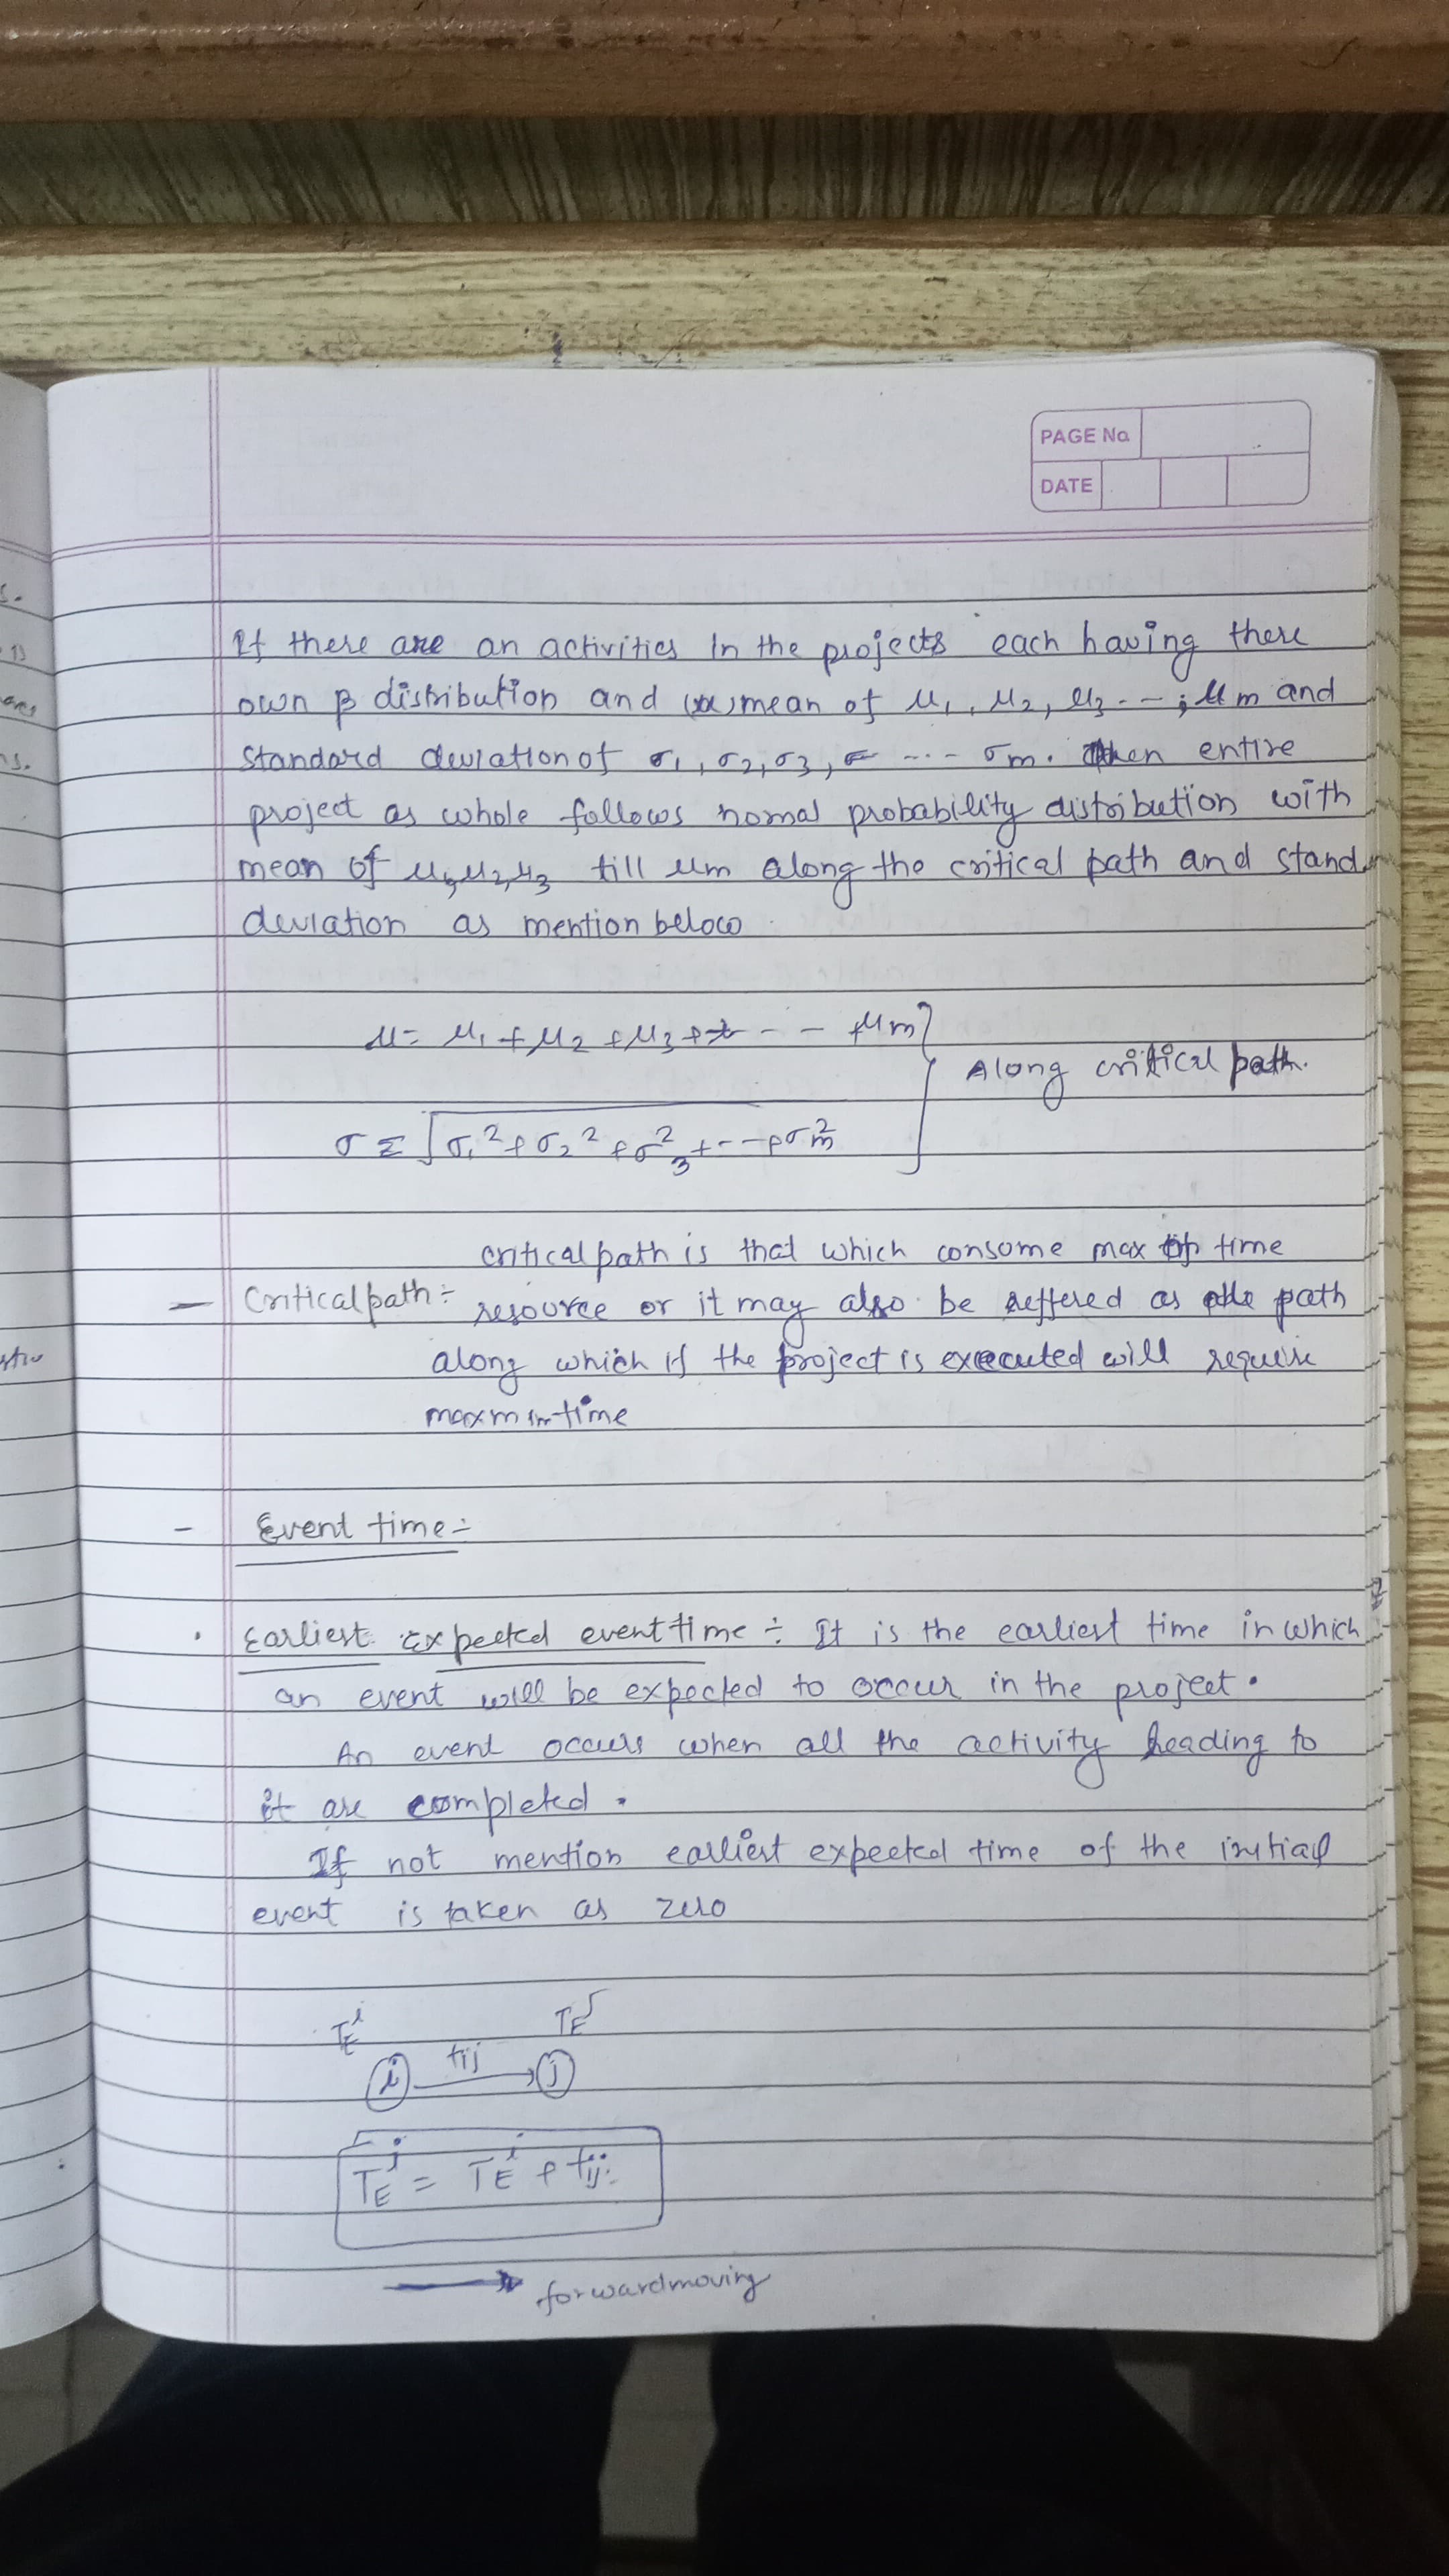 PAGE No.
DATE
If there are an activities in the projects each having there
own β distribution and mean of μ1, μ2, μ3 - - ; μm and
standard deviation of σ1, σ2, σ3, --- σm. Then entire
project as whole follows nomal probability distribution with
mean of μ1, μ2, μ3 till μm along the critical path and stand
deviation as mention below
μ = μ1 + μ2 + μ3 + - - - + μm
Along critical path.
σ = √σ1² + σ2² + σ3² + - - + σm²
critical path is that which consome max time
— Critical path :- resource or it may also be reffered as the path
along which if the project is executed will require
maxmim time
- Event time :-
. Earliest Expected event time :- It is the earliest time in which
an event will be expected to occur in the project.
An event occurs when all the activity heading to
it are completed.
If not mention earliest expected time of the initial
event is taken as zero
TE^i TE^j
i tij j
TE^j = TE^i + tij
→ forward moving